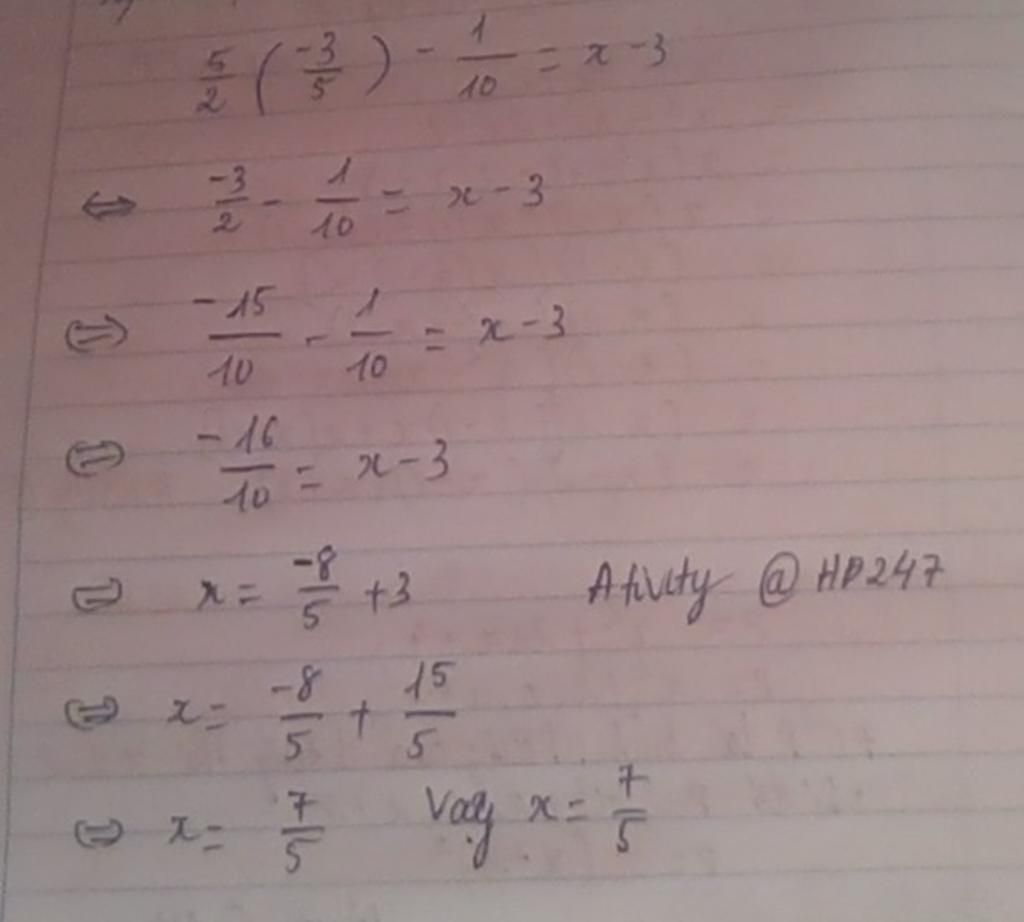 5/2 (-3/5) - 1/10 = x - 3
⇔ -3/2 - 1/10 = x - 3
⇔ -15/10 - 1/10 = x - 3
⇔ -16/10 = x - 3
⇔ x = -8/5 + 3 Ativity @HD247
⇔ x = -8/5 + 15/5
⇔ x = 7/5 Vậy x = 7/5